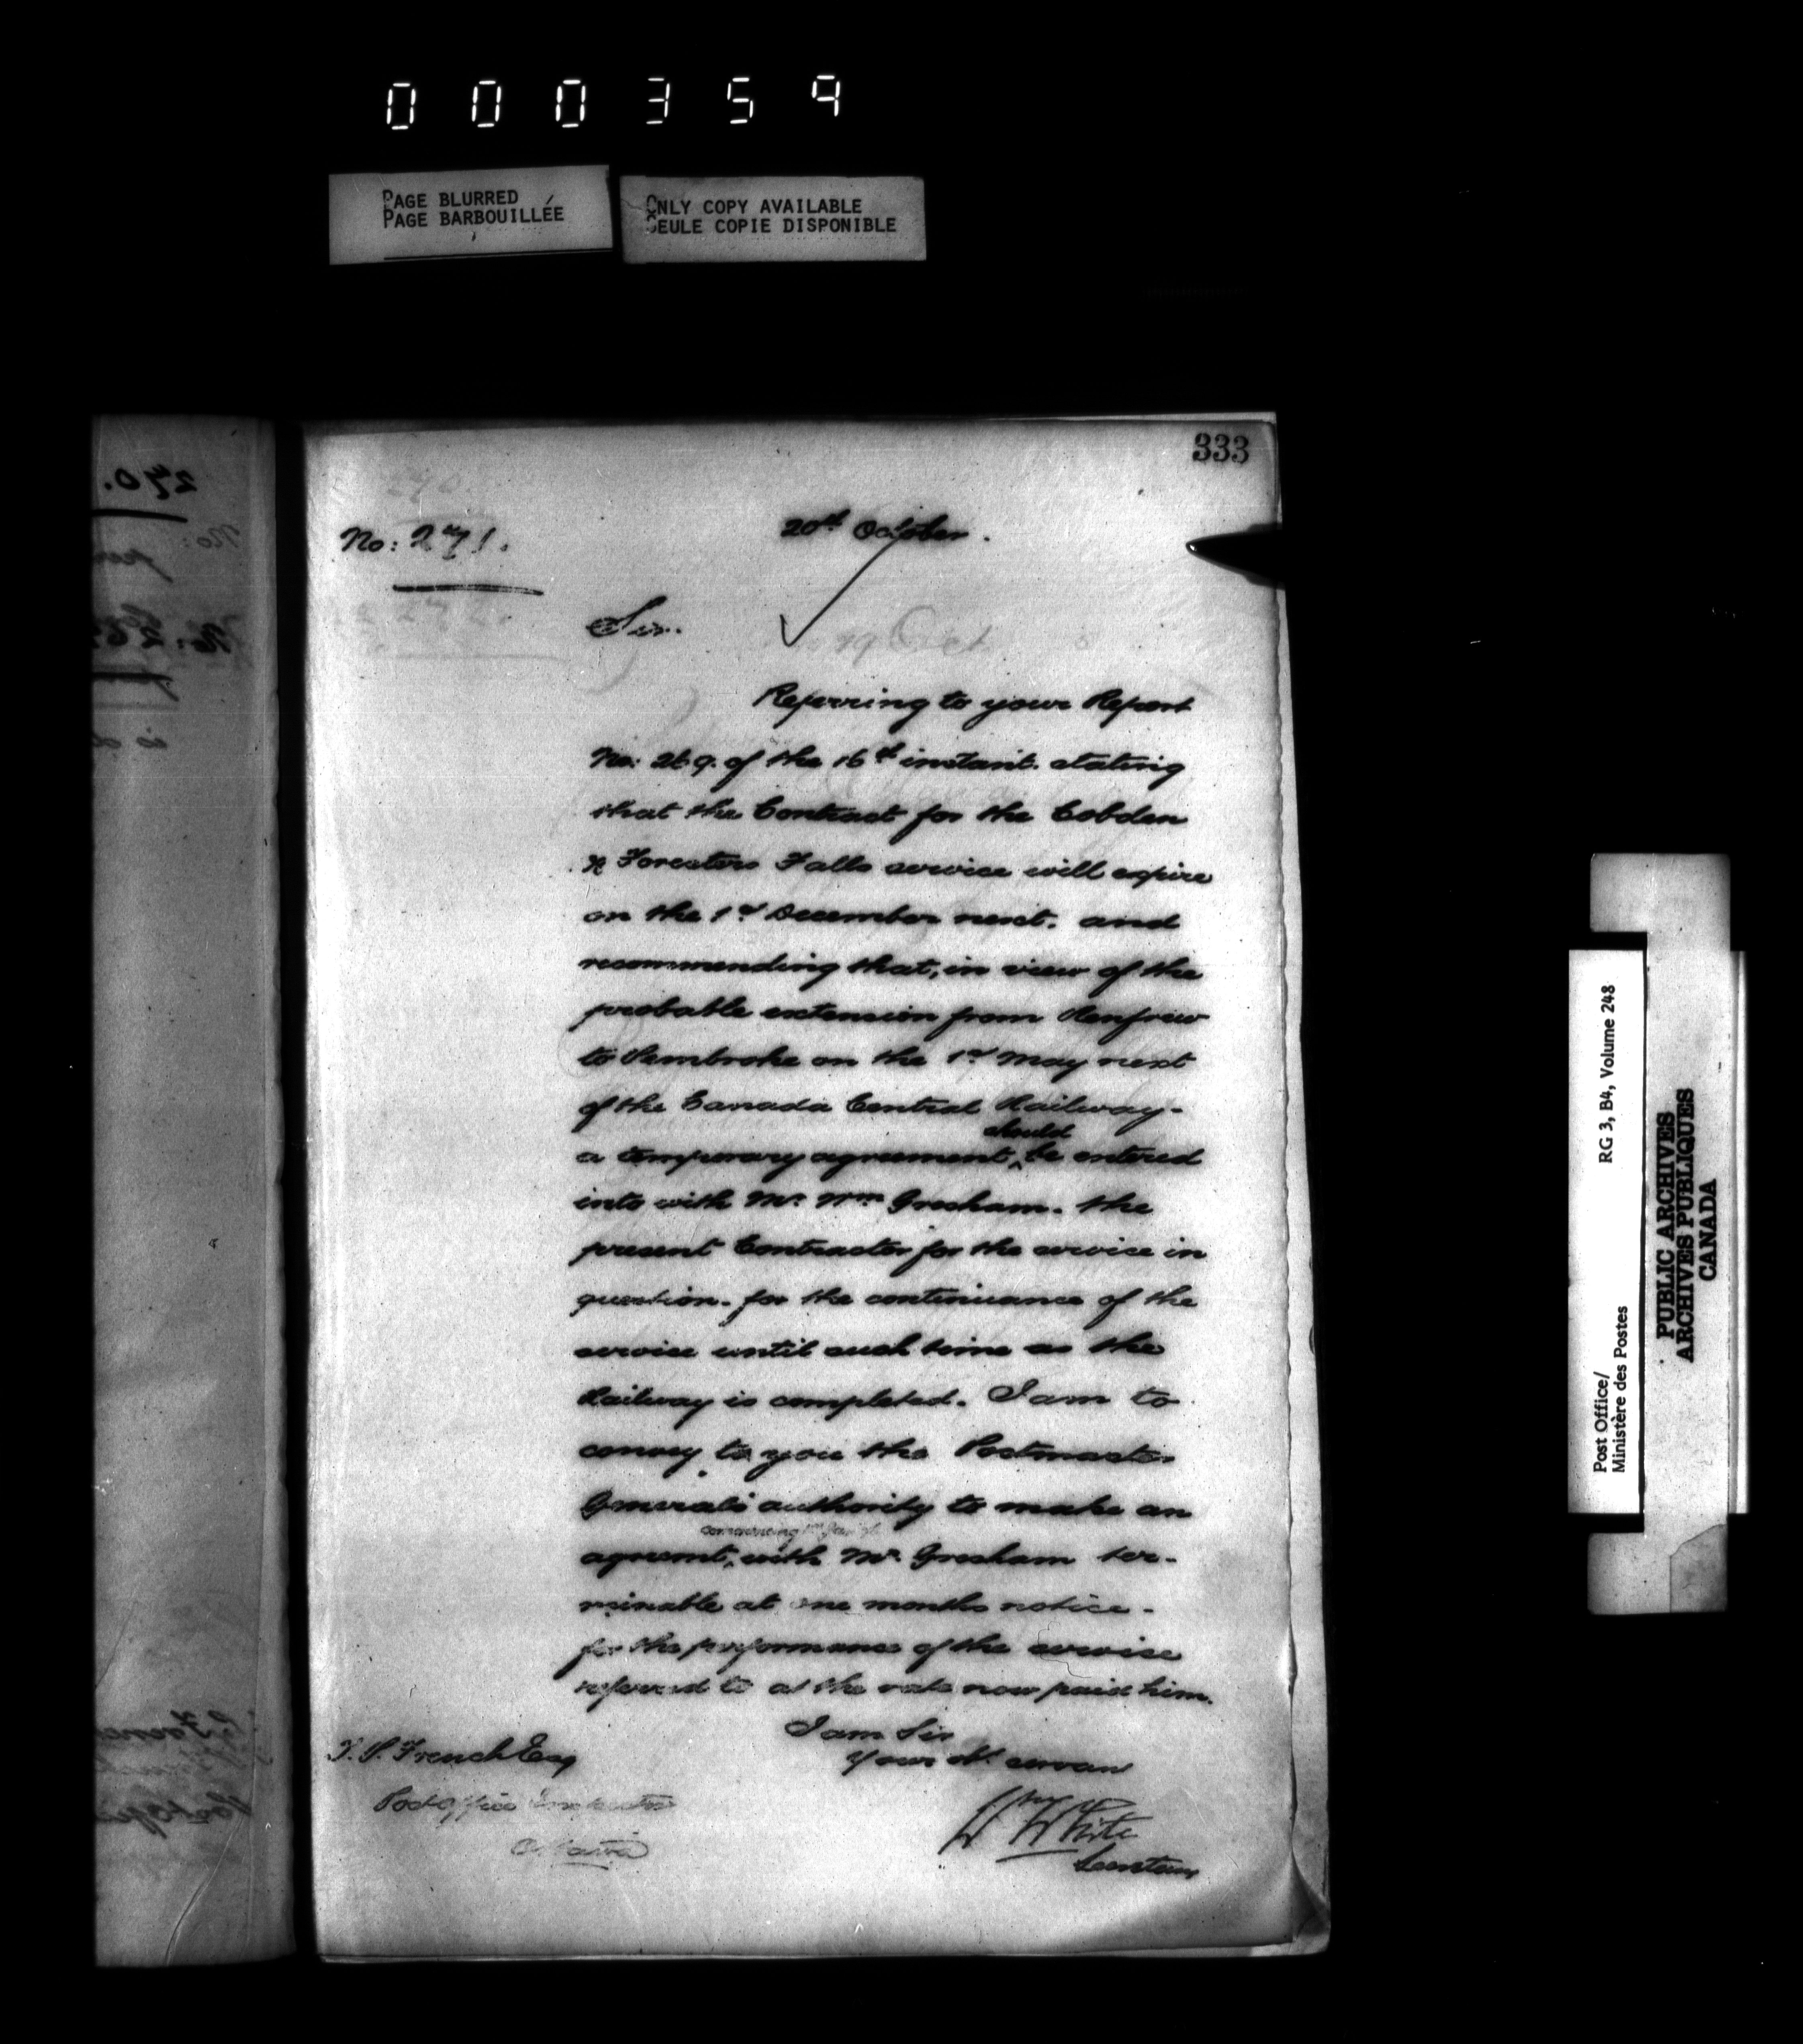 000359
PAGE BLURRED
PAGE BARBOUILLÉE
ONLY COPY AVAILABLE
SEULE COPIE DISPONIBLE
333
20th October.
No: 271.
Sir.
Referring to your Report
No: 269. of the 16th instant. stating
that the Contract for the Cobden
& Foresters Falls service will expire
on the 1st December next. and
recommending that, in view of the
probable extension from Renfrew
to Pembroke on the 1st May next
of the Canada Central Railway-
should
a temporary agreement ‸ be entered
into with Mr. Wm Gresham. the
present Contractor for the service in
question. for the continuance of the
service until such time as the
Railway is completed. I am to
convey to you the Postmaster
General's authority to make an
commencing
agreemt, with Mr. Gresham ter-
minable at one months notice-
for the performance of the service
referred to at the rate now paid him.
I am Sir
Your Ot. servan
French Esq
Post Office Inspector
Ottawa
White
Secretary
270.
Post Office/
Ministère des Postes
RG 3, B4, Volume 248
PUBLIC ARCHIVES
ARCHIVES PUBLIQUES
CANADA